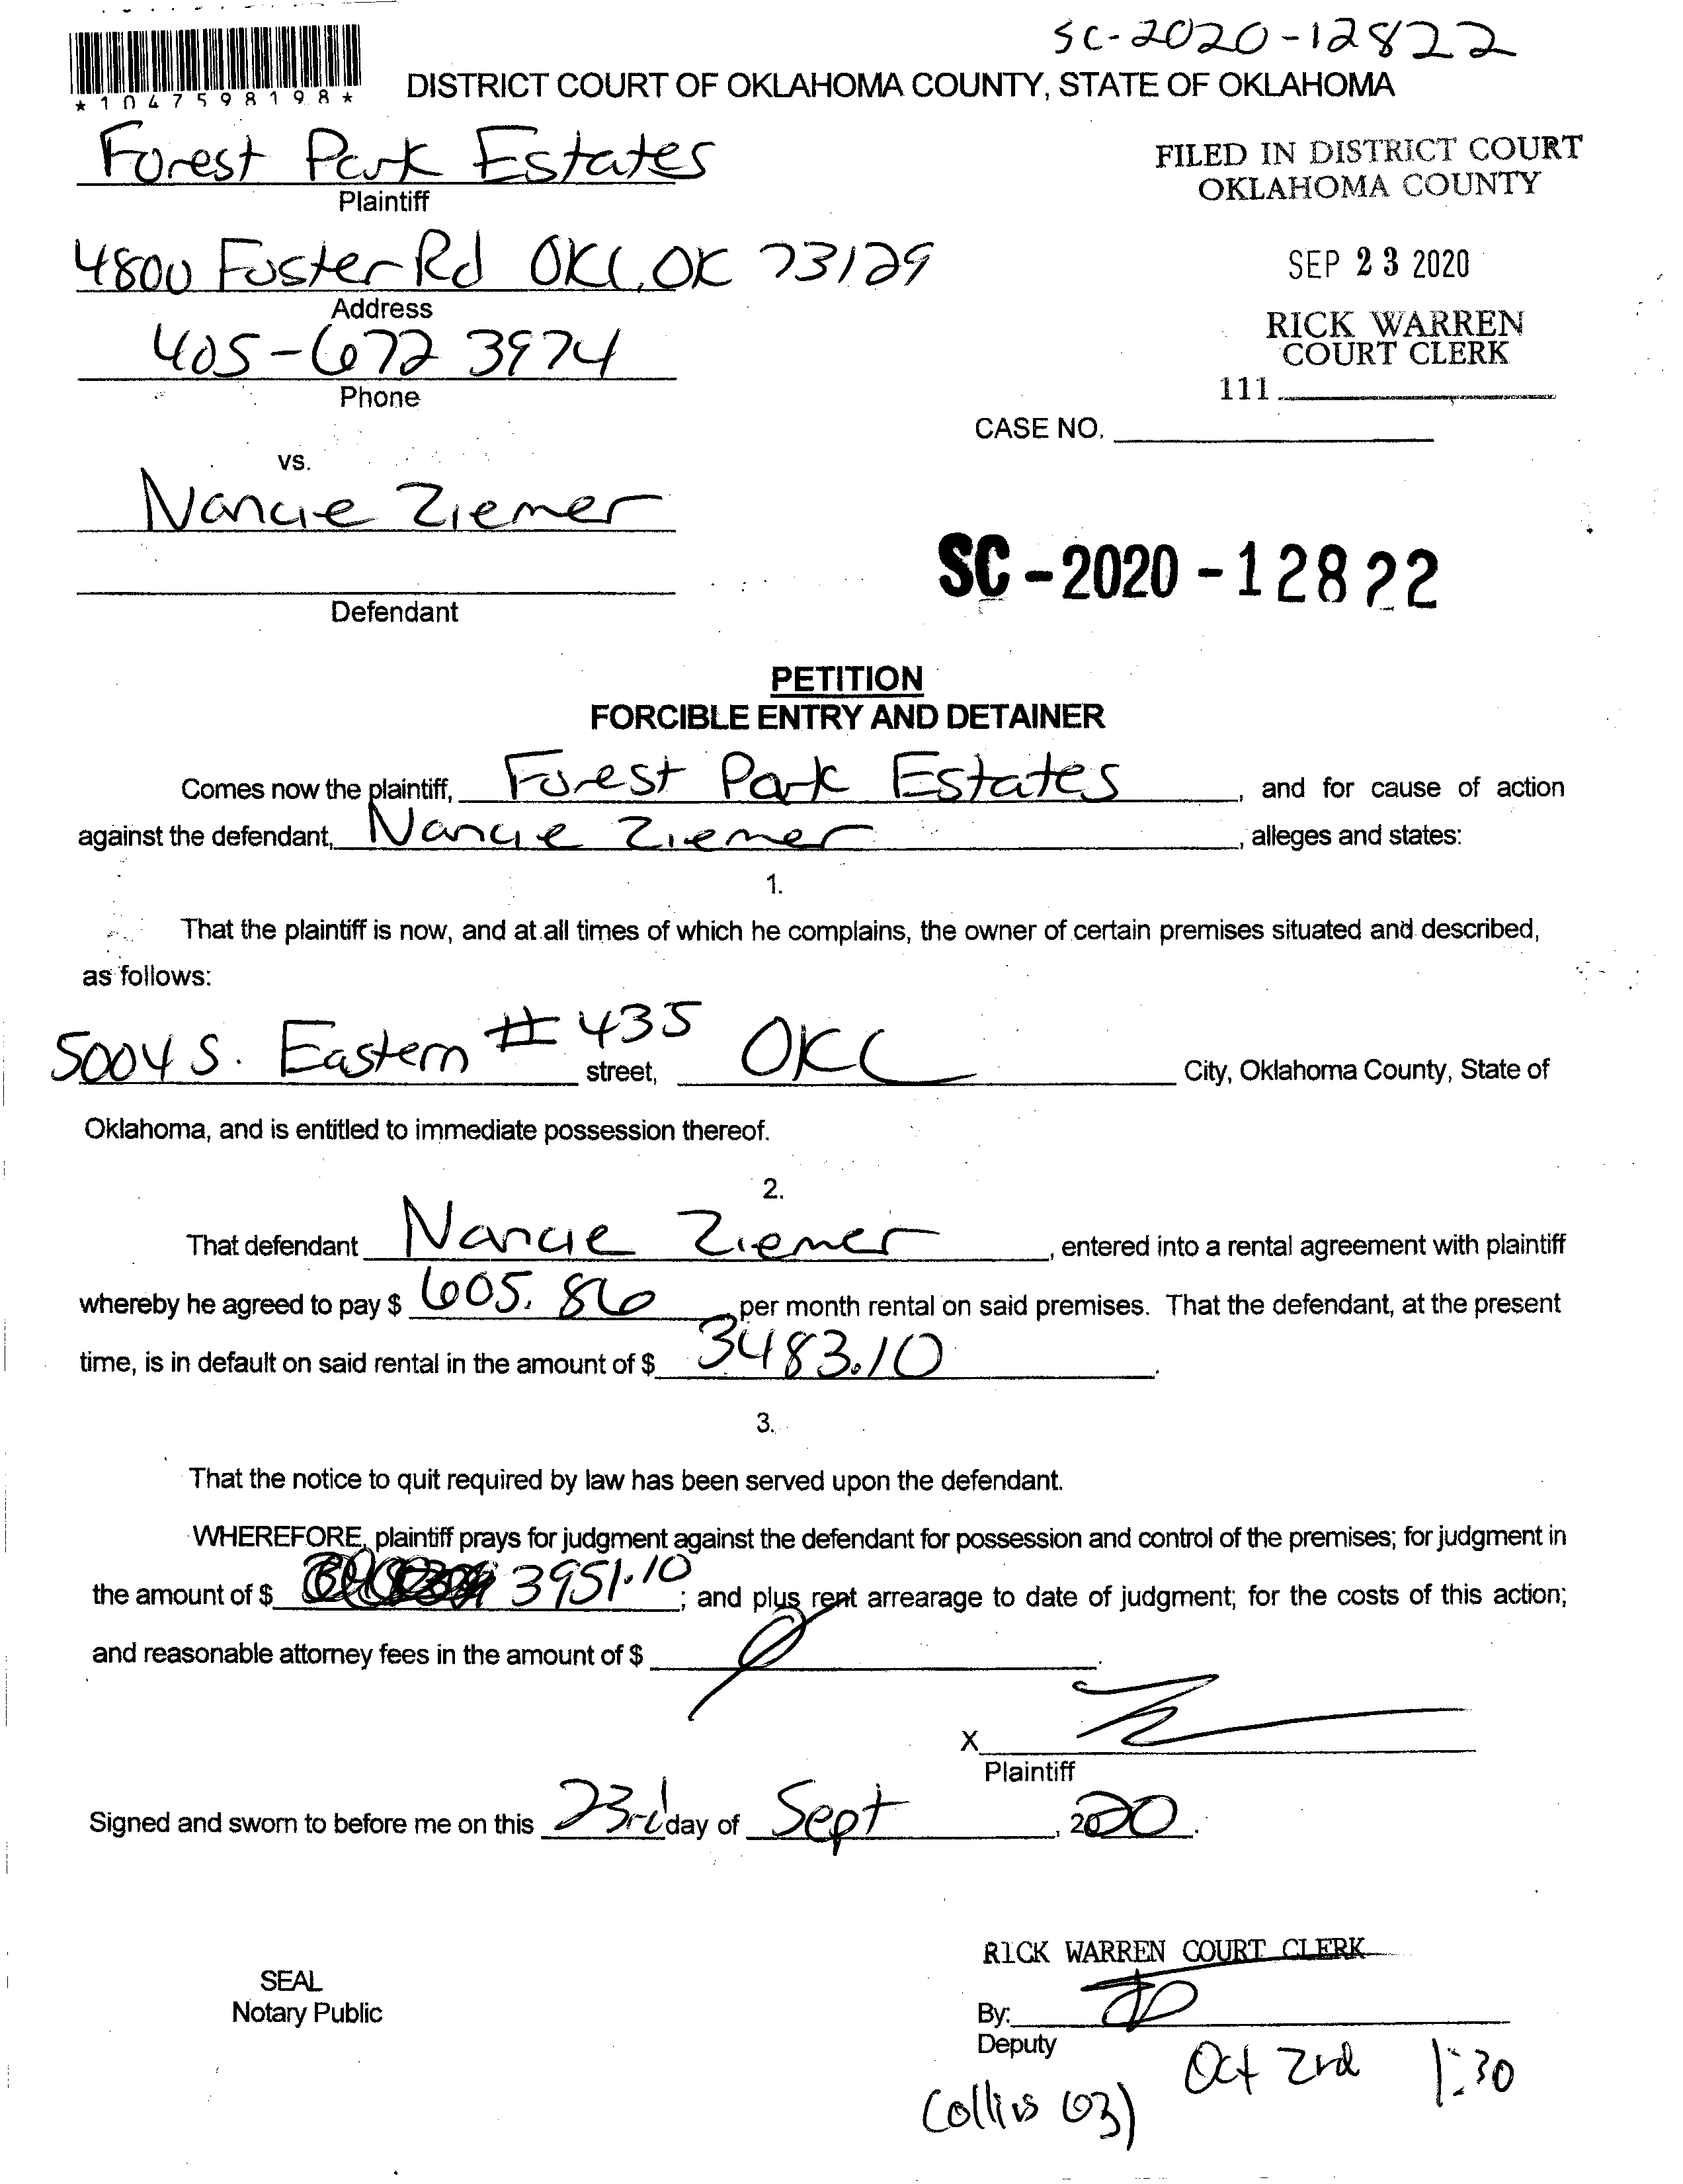 SC-2020-12822
*1047598198*
DISTRICT COURT OF OKLAHOMA COUNTY, STATE OF OKLAHOMA
Forest Park Estates
Plaintiff
FILED IN DISTRICT COURT
OKLAHOMA COUNTY
4800 Foster Rd OKC, OK 73129
Address
SEP 23 2020
405-672 3974
Phone
RICK WARREN
COURT CLERK
111
CASE NO.
vs.
Nancie Ziemer
Defendant
SC-2020-12822
PETITION
FORCIBLE ENTRY AND DETAINER
Comes now the plaintiff, Forest Park Estates, and for cause of action
against the defendant, Nancie Ziemer, alleges and states:
1.
That the plaintiff is now, and at all times of which he complains, the owner of certain premises situated and described,
as follows:
5004 S. Eastern # 435 street, OKC City, Oklahoma County, State of
Oklahoma, and is entitled to immediate possession thereof.
2.
That defendant Nancie Ziemer, entered into a rental agreement with plaintiff
whereby he agreed to pay $ 605.86 per month rental on said premises. That the defendant, at the present
time, is in default on said rental in the amount of $ 3483.10.
3.
That the notice to quit required by law has been served upon the defendant.
WHEREFORE, plaintiff prays for judgment against the defendant for possession and control of the premises; for judgment in
the amount of $ 3951.10; and plus rent arrearage to date of judgment; for the costs of this action;
and reasonable attorney fees in the amount of $ .
X
Plaintiff
Signed and sworn to before me on this 23rd day of Sept, 2020.
RICK WARREN COURT CLERK
SEAL
Notary Public
By:
Deputy
Oct 2nd 1:30
Collins (03)